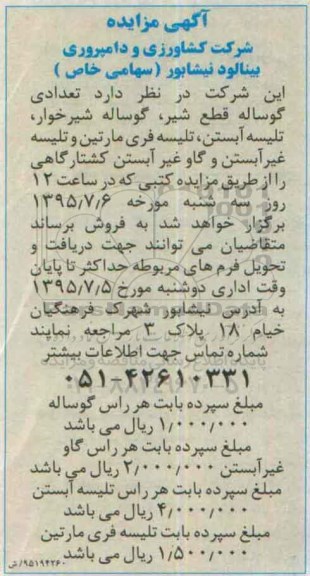 آگهی مزایده
شرکت کشاورزی و دامپروری
بینالود نیشابور (سهامی خاص)
این شرکت در نظر دارد تعدادی
گوساله قطع شیر، گوساله شیرخوار،
تلیسه آبستن، تلیسه فری مارتین و تلیسه
غیرآبستن و گاو غیر آبستن کشتارگاهی
را از طریق مزایده کتبی که در ساعت ۱۲
روز سه شنبه مورخه ۱۳۹۵/۷/۶
برگزار خواهد شد به فروش برساند
متقاضیان می توانند جهت دریافت و
تحویل فرم های مربوطه حداکثر تا پایان
وقت اداری دوشنبه مورخ ۱۳۹۵/۷/۵
به آدرس نیشابور شهرک فرهنگیان
خیام ۱۸ پلاک ۳ مراجعه نمایند
شماره تماس جهت اطلاعات بیشتر
۰۵۱-۴۲۶۱۰۳۳۱
مبلغ سپرده بابت هر راس گوساله
۱/۰۰۰/۰۰۰ ریال می باشد
مبلغ سپرده بابت هر راس گاو
غیرآبستن ۲/۰۰۰/۰۰۰ ریال می باشد
مبلغ سپرده بابت هر راس تلیسه آبستن
۴/۰۰۰/۰۰۰ ریال می باشد
مبلغ سپرده بابت تلیسه فری مارتین
۱/۵۰۰/۰۰۰ ریال می باشد
۹۵۱۹۴۲۶۰/ش